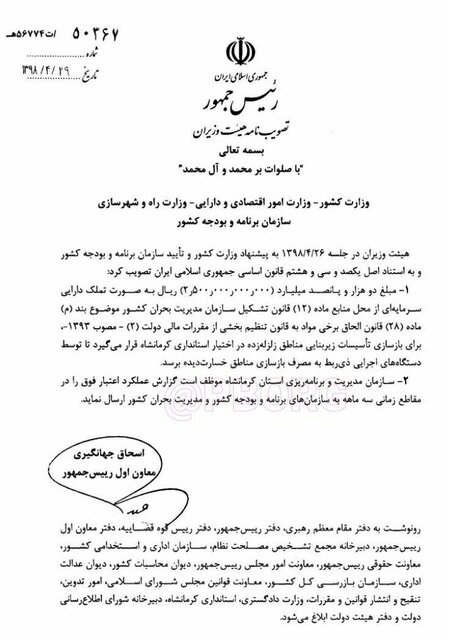 ۵۰۳۶۷ / ت۵۶۷۷۴هـ
شماره
۱۳۹۸/۴/۲۹ تاریخ
جمهوری اسلامی ایران
رئیس جمهور
تصویب نامه هیئت وزیران
بسمه تعالی
"با صلوات بر محمد و آل محمد"
وزارت کشور - وزارت امور اقتصادی و دارایی - وزارت راه و شهرسازی
سازمان برنامه و بودجه کشور
هیئت وزیران در جلسه ۱۳۹۸/۴/۲۶ به پیشنهاد وزارت کشور و تأیید سازمان برنامه و بودجه کشور
و به استناد اصل یکصد و سی و هشتم قانون اساسی جمهوری اسلامی ایران تصویب کرد:
۱- مبلغ دو هزار و پانصد میلیارد (۲٫۵۰۰٫۰۰۰٫۰۰۰٫۰۰۰) ریال به صورت تملک دارایی
سرمایه‌ای از محل منابع ماده (۱۲) قانون تشکیل سازمان مدیریت بحران کشور موضوع بند (م)
ماده (۲۸) قانون الحاق برخی مواد به قانون تنظیم بخشی از مقررات مالی دولت (۲) - مصوب ۱۳۹۳-،
برای بازسازی تأسیسات زیربنایی مناطق زلزله‌زده در اختیار استانداری کرمانشاه قرار می‌گیرد تا توسط
دستگاه‌های اجرایی ذی‌ربط به مصرف بازسازی مناطق خسارت‌دیده برسد.
۲- سازمان مدیریت و برنامه‌ریزی استان کرمانشاه موظف است گزارش عملکرد اعتبار فوق را در
مقاطع زمانی سه ماهه به سازمان‌های برنامه و بودجه کشور و مدیریت بحران کشور ارسال نماید.
اسحاق جهانگیری
معاون اول رییس‌جمهور
رونوشت به دفتر مقام معظم رهبری، دفتر رییس‌جمهور، دفتر رییس قوه قضاییه، دفتر معاون اول
رییس‌جمهور، دبیرخانه مجمع تشخیص مصلحت نظام، سازمان اداری و استخدامی کشور،
معاونت حقوقی رییس‌جمهور، معاونت امور مجلس رییس‌جمهور، دیوان محاسبات کشور، دیوان عدالت
اداری، سازمان بازرسی کل کشور، معاونت قوانین مجلس شورای اسلامی، امور تدوین،
تنقیح و انتشار قوانین و مقررات، وزارت دادگستری، استانداری کرمانشاه، دبیرخانه شورای اطلاع‌رسانی
دولت و دفتر هیئت دولت ابلاغ می‌شود.